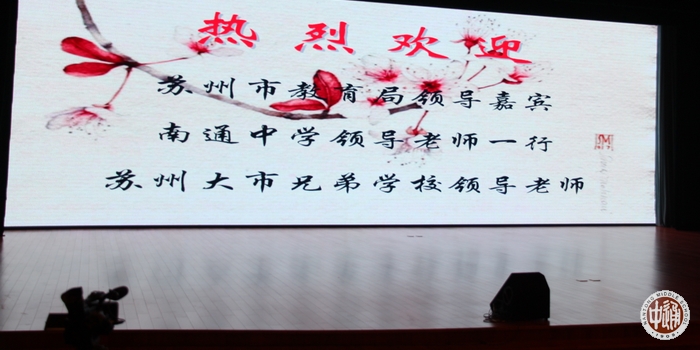 热烈欢迎
苏州市教育局领导嘉宾
南通中学领导老师一行
苏州大市兄弟学校领导老师
NANTONG MIDDLE SCHOOL
通中
1909